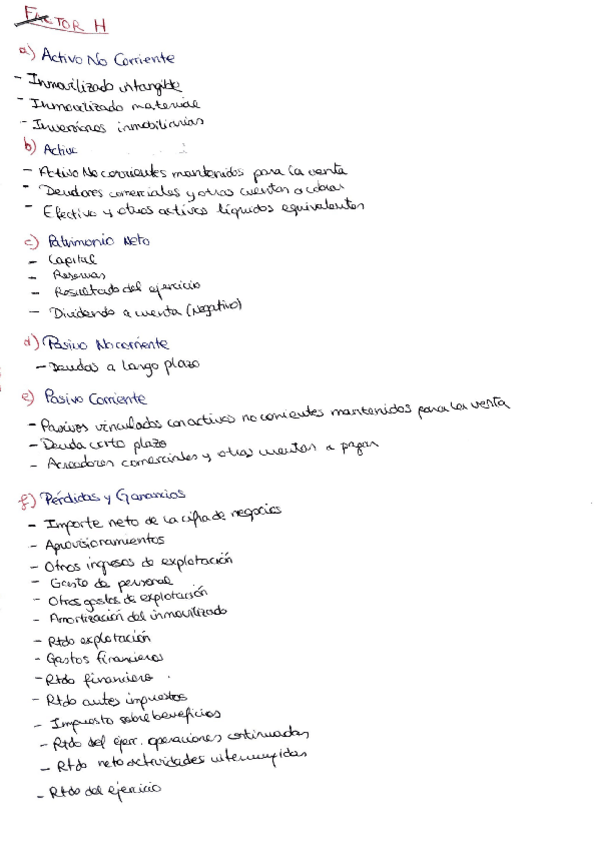 FACTOR H
a) Activo No Corriente
- Inmovilizado intangible
- Inmovilizado material
- Inversiones inmobiliarias
b) Activo
- Activo No corrientes mantenidos para la venta
- Deudores comerciales y otras cuentas a cobrar
- Efectivo y otros activos líquidos equivalentes
c) Patrimonio Neto
- Capital
- Reservas
- Resultado del ejercicio
- Dividendo a cuenta (Negativo)
d) Pasivo No corriente
- Deudas a largo plazo
e) Pasivo Corriente
- Pasivos vinculados con activos no corrientes mantenidos para la venta
- Deuda corto plazo
- Acreedores comerciales y otras cuentas a pagar
f) Pérdidas y Ganancias
- Importe neto de la cifra de negocios
- Aprovisionamientos
- Otros ingresos de explotación
- Gasto de personal
- Otros gastos de explotación
- Amortización del inmovilizado
- Rtdo explotación
- Gastos financieros
- Rtdo financiero
- Rtdo antes impuestos
- Impuesto sobre beneficios
- Rtdo del ejerc. operaciones continuadas
- Rtdo neto actividades interrumpidas
- Rtdo del ejercicio